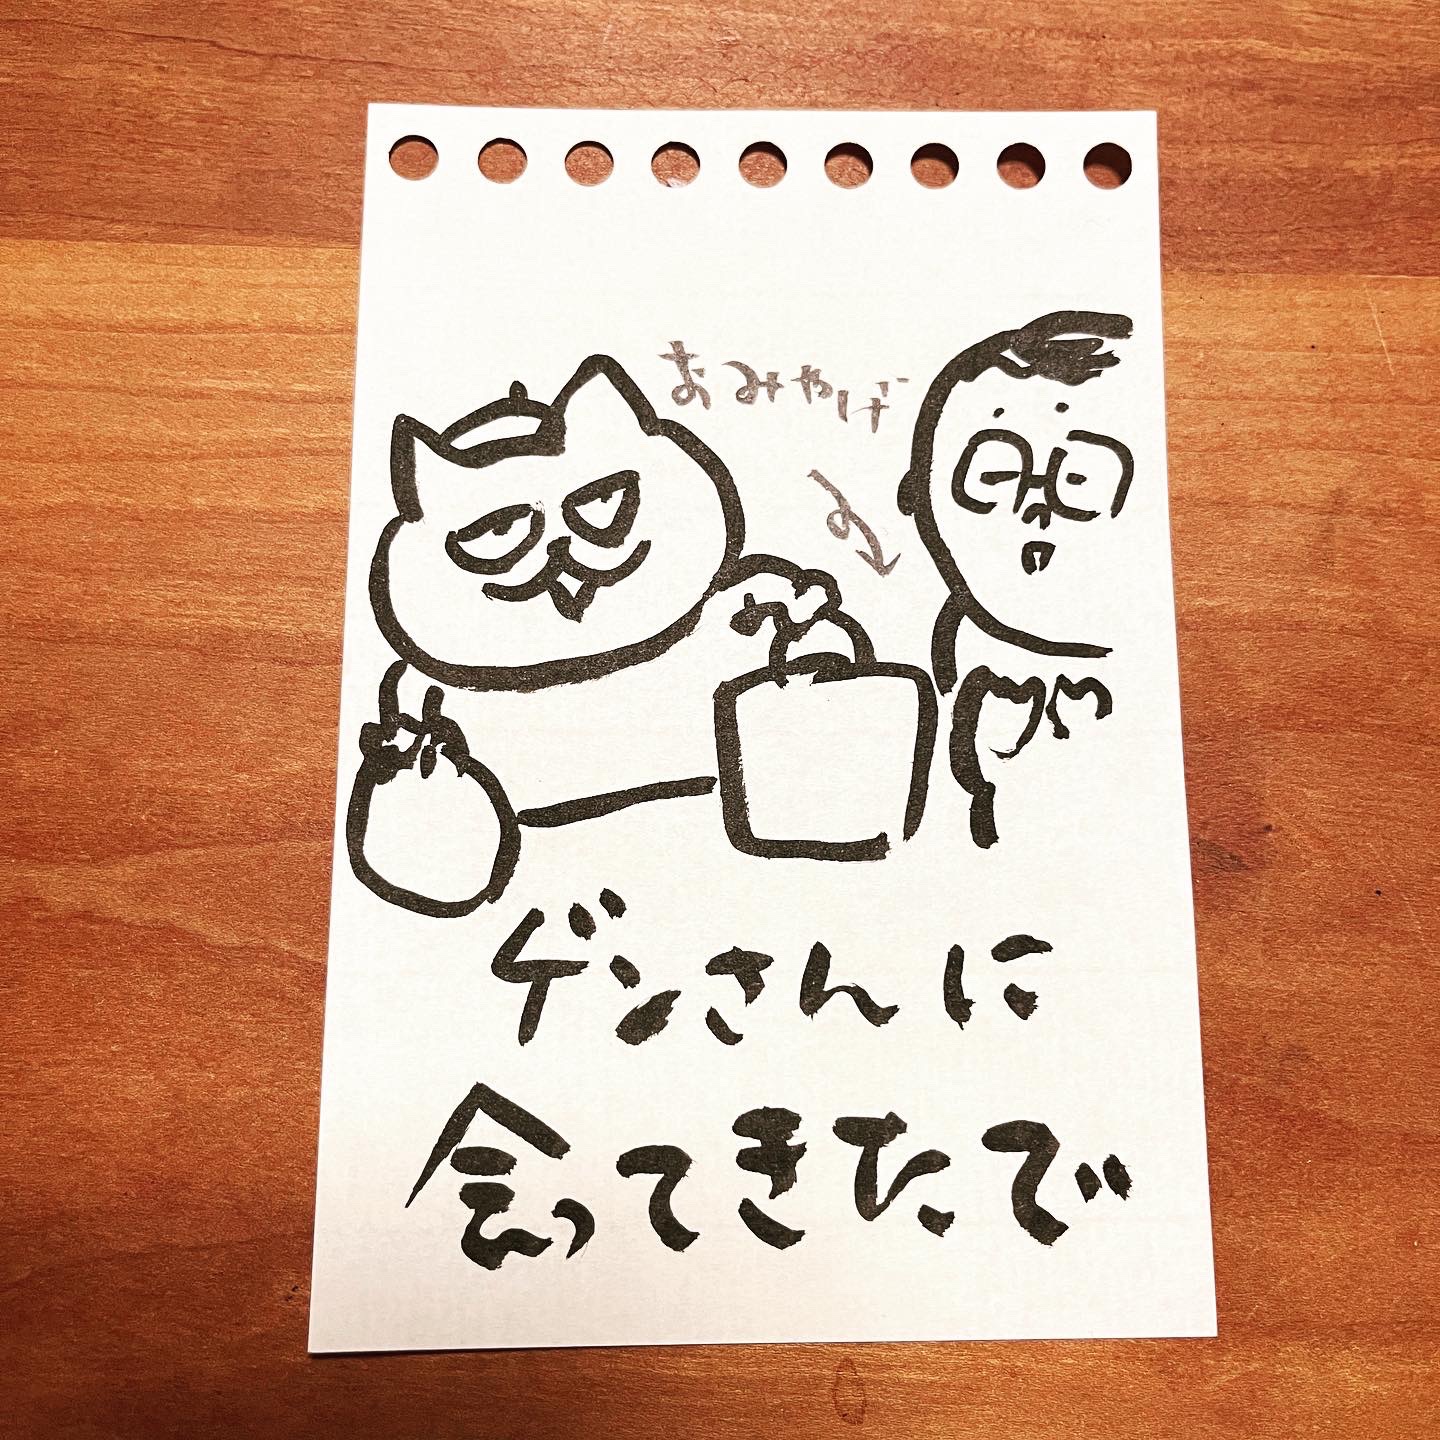 おみやげ
ゲンさんに
会ってきたで